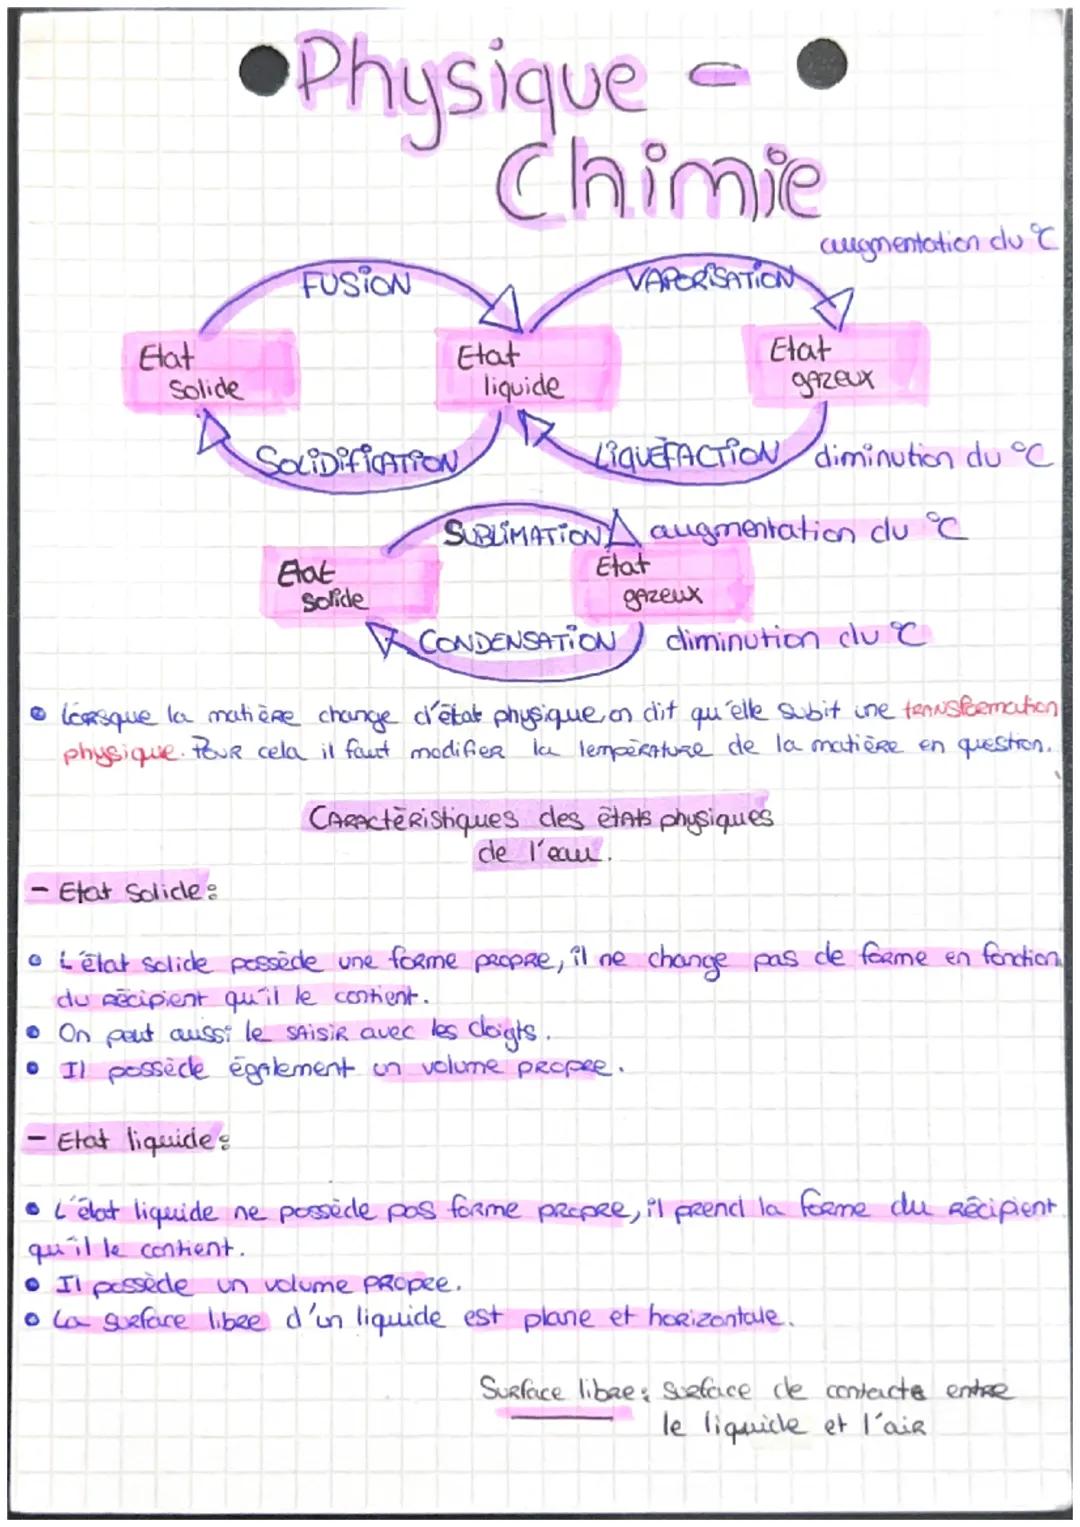 Physique -
Chimie
augmentation du °C
FUSION
VAPORISATION
Etat
Solide
Etat
liquide
Etat
gazeux
SOLIDIFICATION
LIQUÉFACTION
diminution du °C
SUBLIMATION
augmentation du °C
Etat
Solide
Etat
gazeux
CONDENSATION
diminution du °C
• Lorsque la matière change d'état physique, on dit qu'elle subit une transformation
physique. Pour cela il faut modifier la température de la matière en question.
Caractéristiques des états physiques
de l'eau.
- Etat Solide :
• L'état solide possède une forme propre, il ne change pas de forme en fonction
du récipient qu'il le contient.
• On peut aussi le saisir avec les doigts.
• Il possède également un volume propre.
- Etat liquide :
• L'état liquide ne possède pas forme propre, il prend la forme du récipient
qu'il le contient.
• Il possède un volume propre.
• La surface libre d'un liquide est plane et horizontale.
Surface libre : surface de contacte entre
le liquide et l'air